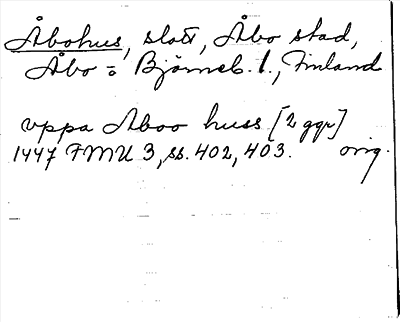 Åbohus, slott, Åbo stad,
Åbo o Björneb. l., Finland
vppa Aboo huss [2 ggr]
1447 FMU 3, ss. 402, 403. orig.